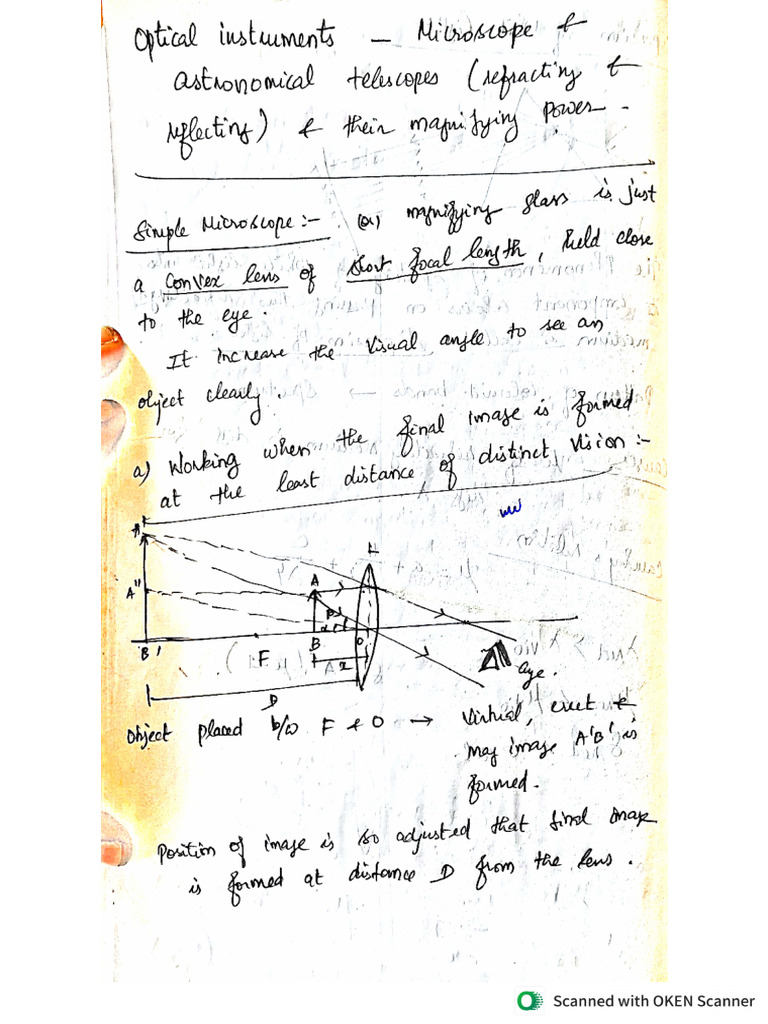 Optical instruments - Microscope &
astronomical telescopes (refracting &
reflecting) & their magnifying power -
Simple Microscope:- (or) magnifying glass is just
a convex lens of short focal length, held close
to the eye.
It increase the visual angle to see an
object clearly.
a) Working when the final image is formed
at the least distance of distinct vision:-
A'
A"
B'
F
A
B
β
α
L
O
x
D
eye.
Object placed b/w F & O → virtual, erect &
mag image A'B' is
formed.
Position of image is so adjusted that final image
is formed at distance D from the lens.
Scanned with OKEN Scanner